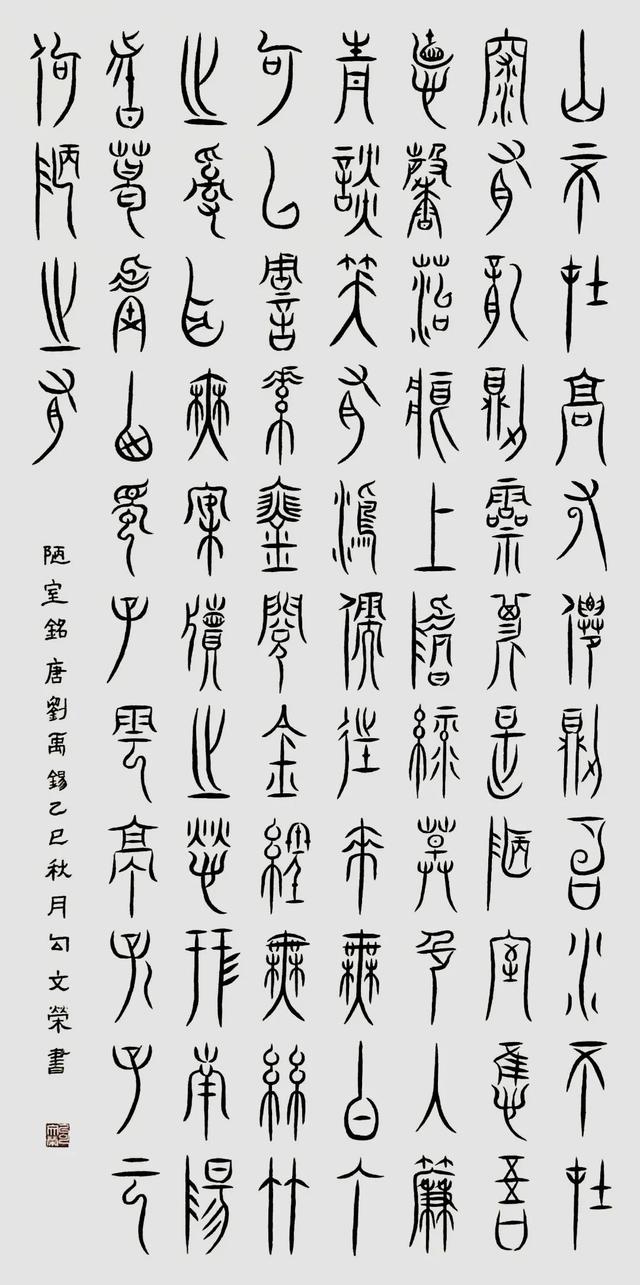 山不在高有僊則名水不在
深有龍則靈斯是陋室惟吾
悳馨苔痕上階綠草色入簾
青談笑有鴻儒往來無白丁
可以調素琴閱金經無絲竹
之亂耳無案牘之勞形南陽
諸葛廬西蜀子雲亭孔子云
何陋之有
陋室銘唐劉禹錫乙巳秋月勾文榮書